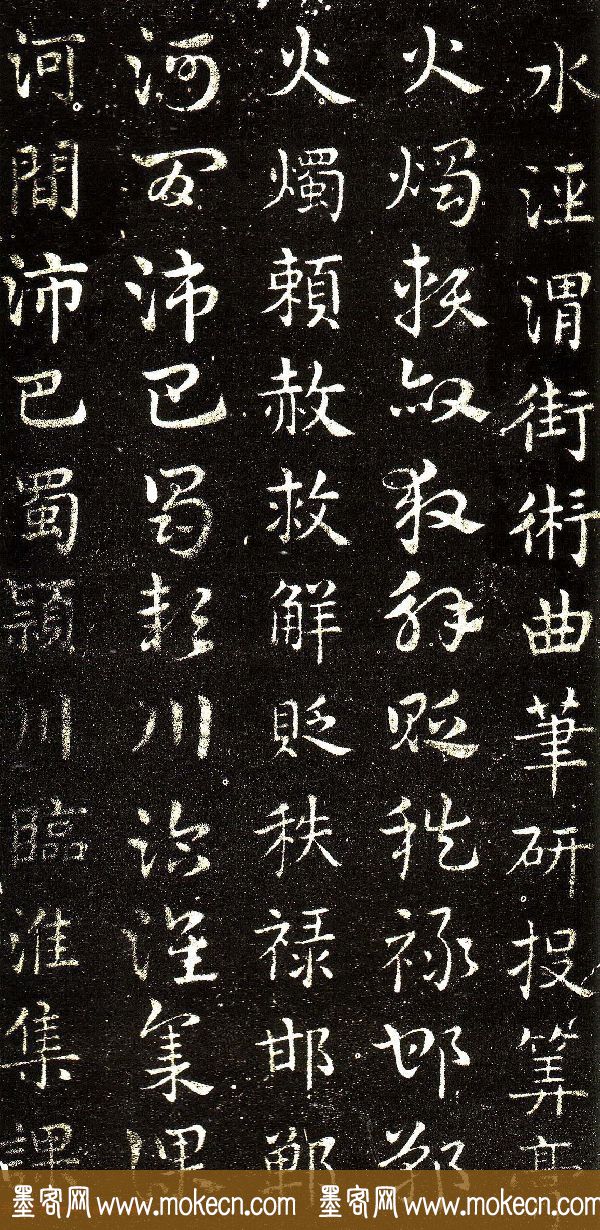 水涇渭街術曲筆研投筭膏
火燭賴赦救解貶秩祿邯鄲
火燭賴赦救解貶秩祿邯鄲
河間沛巴蜀潁川臨淮集課
河間沛巴蜀潁川臨淮集課
墨客网 www.mokecn.com 墨客网 www.mokecn.com